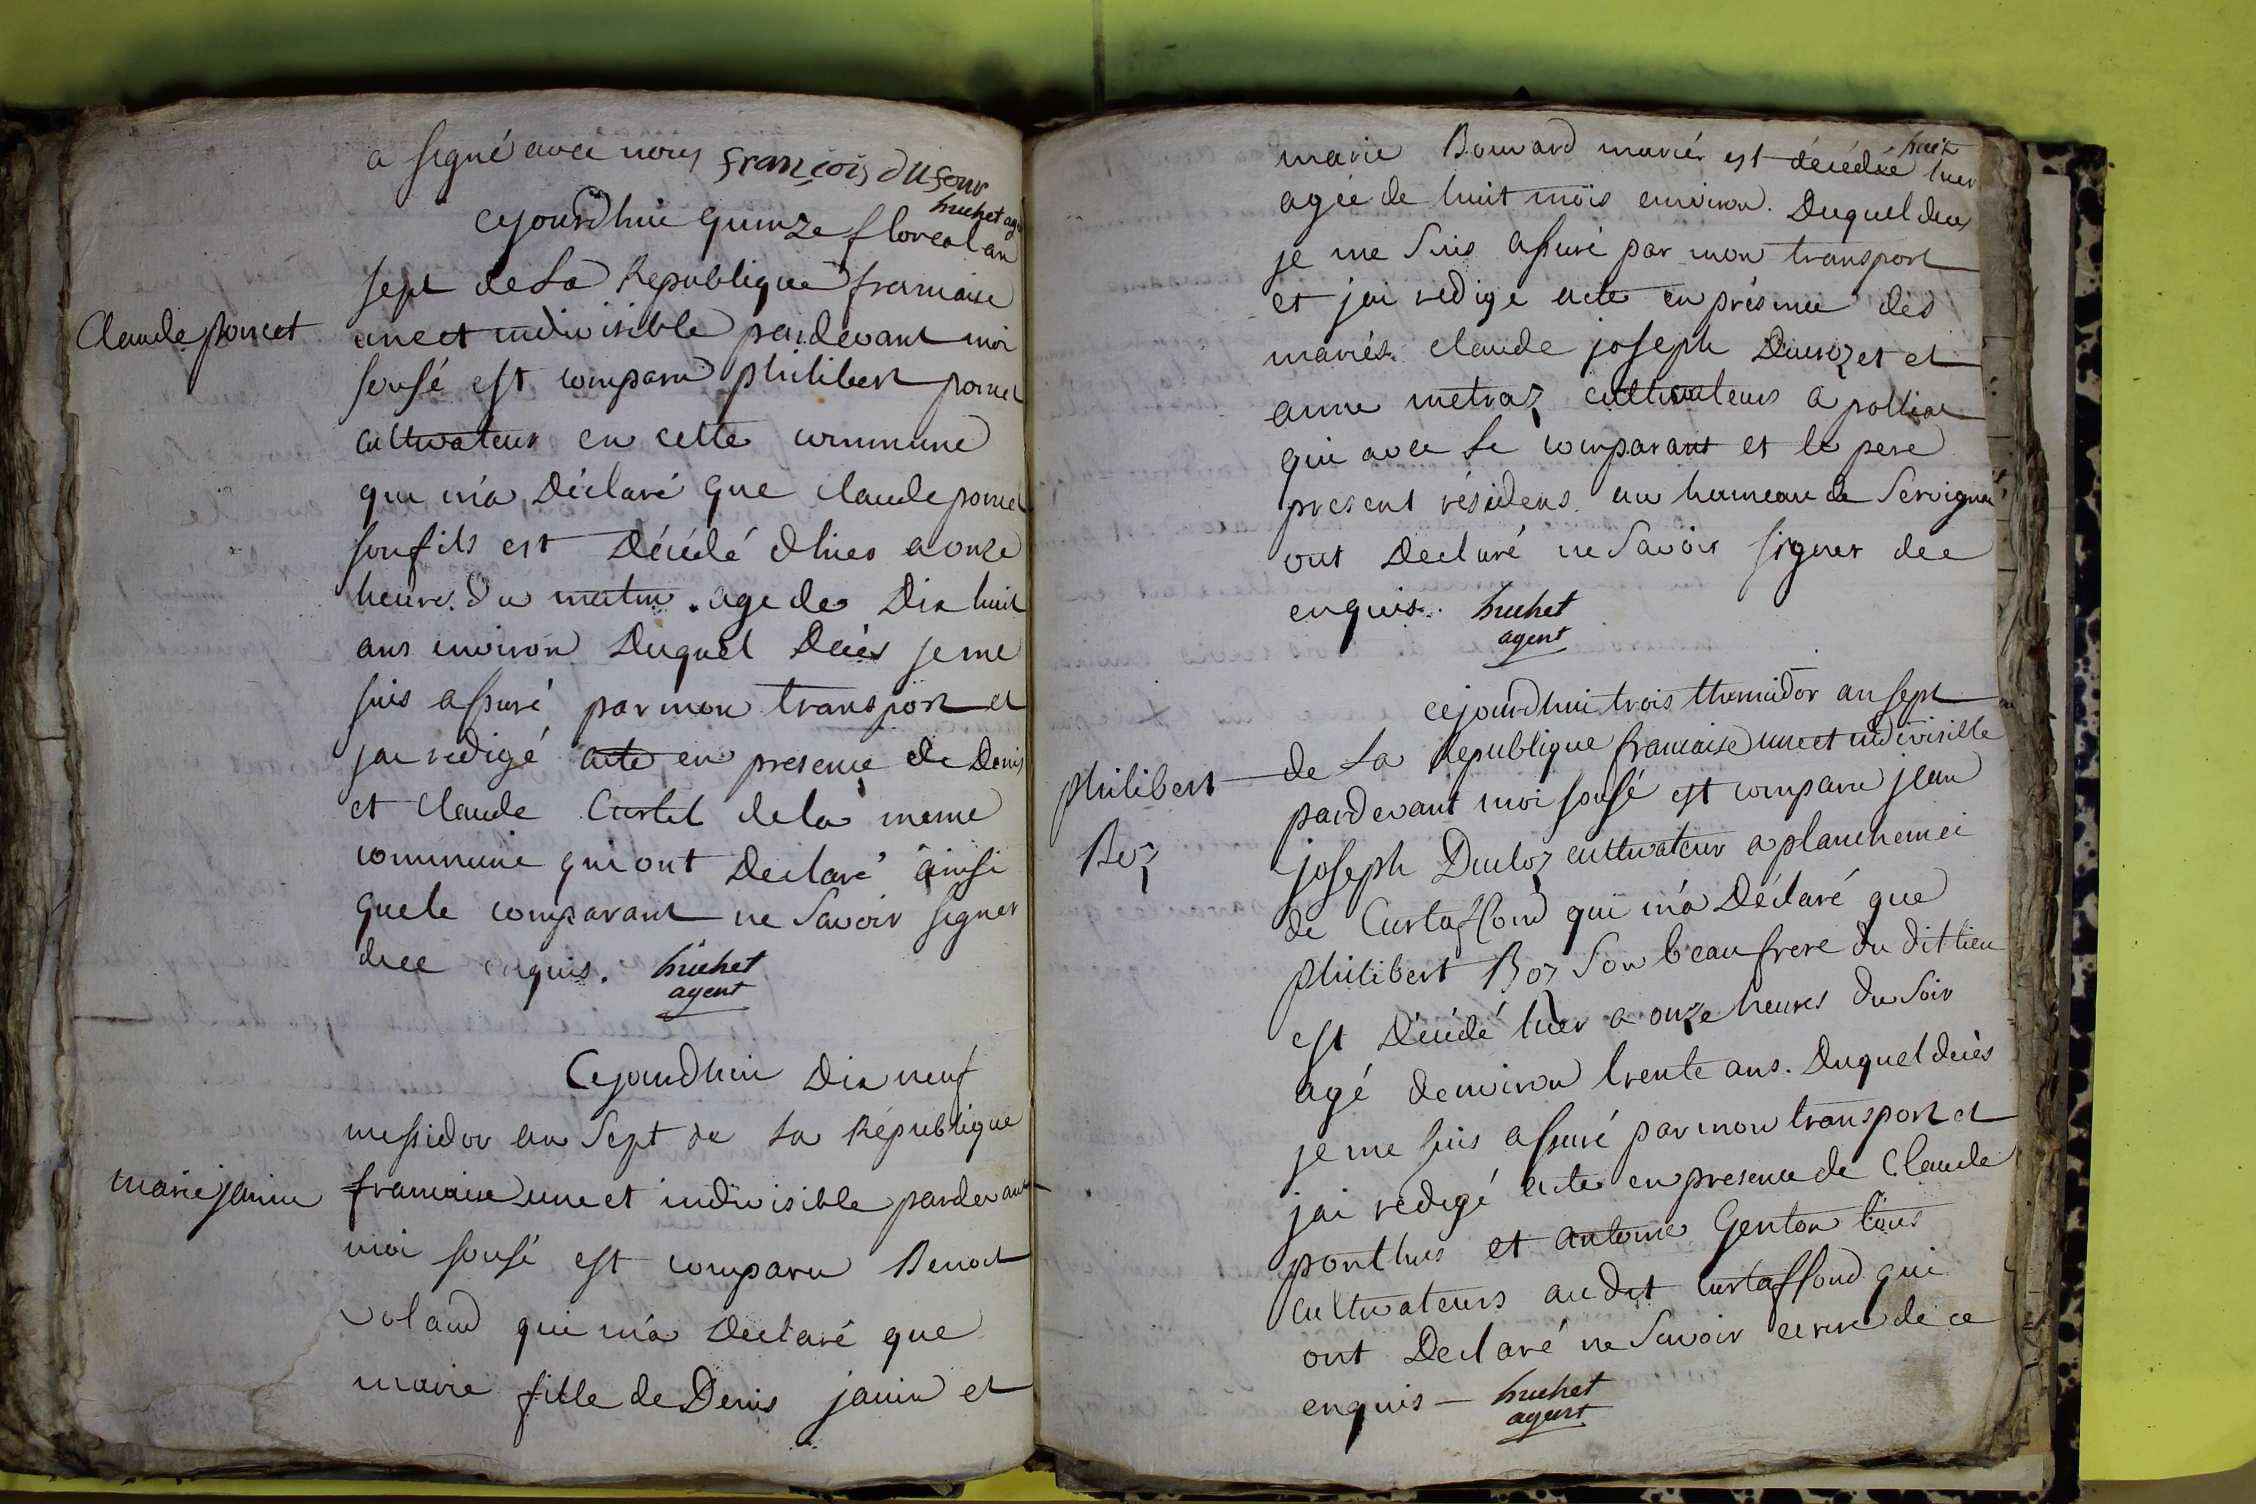 a signé avec nous françois dufour
huchet agt
Cejourdhui quinze floreal an
sept de La Republique francaise
Claude poncet
une et indivisible pardevant moi
sousé est comparu philibert poncet
cultivateur en cette commune
qui m'a Déclaré que claude poncet
son fils est Décédé d'hier a onze
heure du matin. age de Dix huit
ans environ Duquel Décès je me
suis assuré par mon transport et
jai redigé acte en presence de Denis
et Claude Curtil de la meme
commune qui ont Declaré ainsi
que le comparant ne Savoir signer
dece enquis. huchet
agent
Cejourdhui Dix neuf
messidor an Sept de La République
marie janin
francaise une et indivisible pardevant
moi sousé est comparu Benoit
voland qui m'a Declaré que
marie fille de Denis janin et
marie Bouvard mariés est décédée hier
agée de huit mois environ. Duquel deces
je me Suis assuré par mon transport
et jai redigé acte en présence des
mariés claude joseph Duvozet et
anne metraz cultivateurs a polliat
qui avec Le comparant et le pere
present résidens au hameau de Servignat
ont Declaré ne Savoir signer dece
enquis. huchet
agent
cejourdhui trois thermidor an sept
de La Republique francaise une et indivisible
philibert
Boz
pardevant moi sousé est comparu jean
joseph Ducloz cultivateur a planchemei
de Curtaffond qui m'a Déclaré que
philibert Boz Son beau frere du dit lieu
est Décédé hier a onze heures du Soir
agé denviron trente ans. Duquel decès
je me suis assuré par mon transport et
jai redigé acte en presence de Claude
ponthus et antoine Genton tous
cultivateurs audit Curtaffond qui
ont Declaré ne Savoir ecrire de ce
enquis — huchet
agent